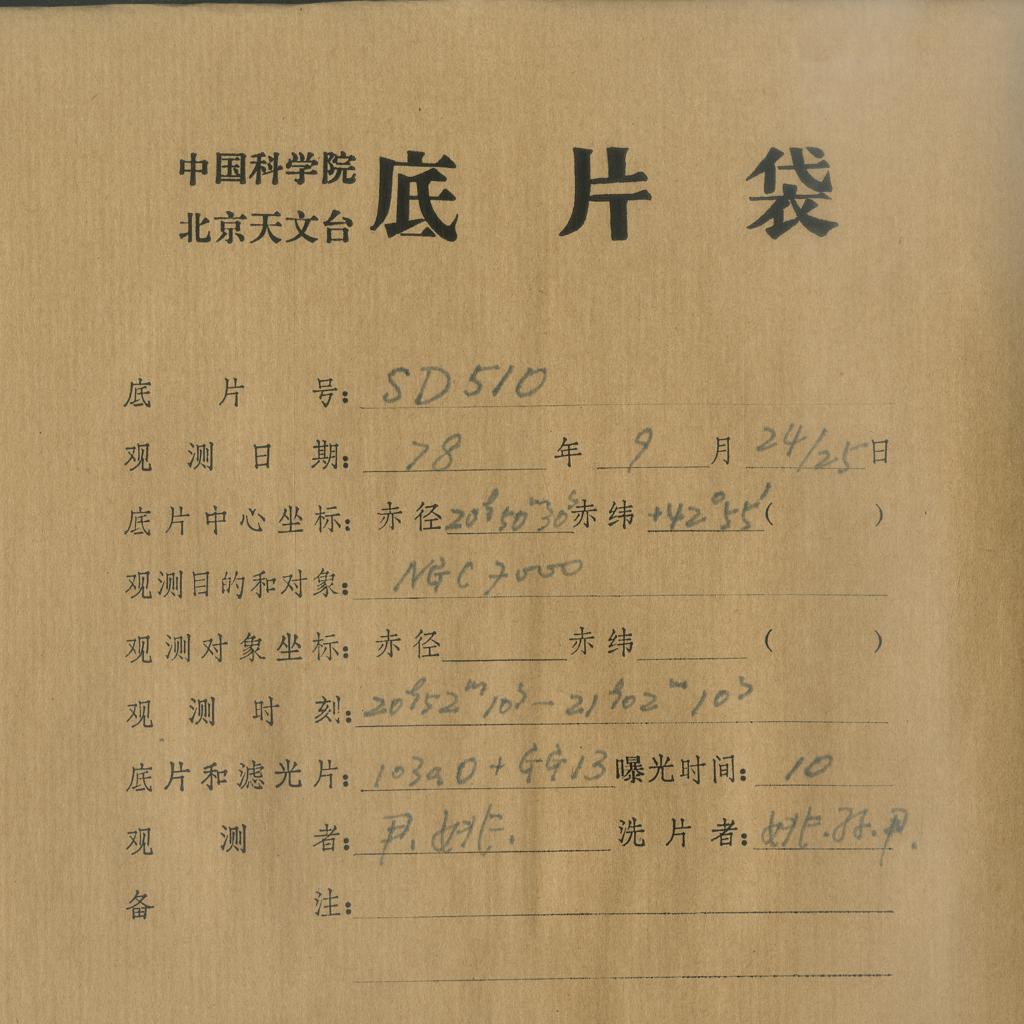 中国科学院
北京天文台 底片袋
底片号: SD510
观测日期: 78 年 9 月 24/25 日
底片中心坐标: 赤径 20h50m30s 赤纬 +42°55′ ( )
观测目的和对象: NGC 7000
观测对象坐标: 赤径 赤纬 ( )
观测时刻: 20h52m10s — 21h02m10s
底片和滤光片: 103aO + GG13 曝光时间: 10
观测者: 尹. 洗片者: 孙.尹.
备注: